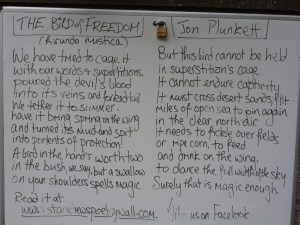 THE BIRD of FREEDOM
(Hirundo rustica)
We have tried to cage it
with our words & superstitions
poured the devil's blood
into its veins and forbid
We tether it to summer
have it bring spring on the wing
and turned its mud and spit
into portents of protection!
A bird in the hand's worth two
in the bush, we say, but a swallow
on your shoulders spells magic.
Read it at
www.stanzaspoetrywall.com
Jon Plunkett
But this bird cannot be held
in superstition's cage
It cannot endure captivity
It must cross desert sands, flit
miles of open sea to join again
in the clear north air
It needs to flicker over fields
or ripe corn, to feed
and drink on the wing,
to dance the full width of the sky
Surely that is magic enough
/ like us on Facebook